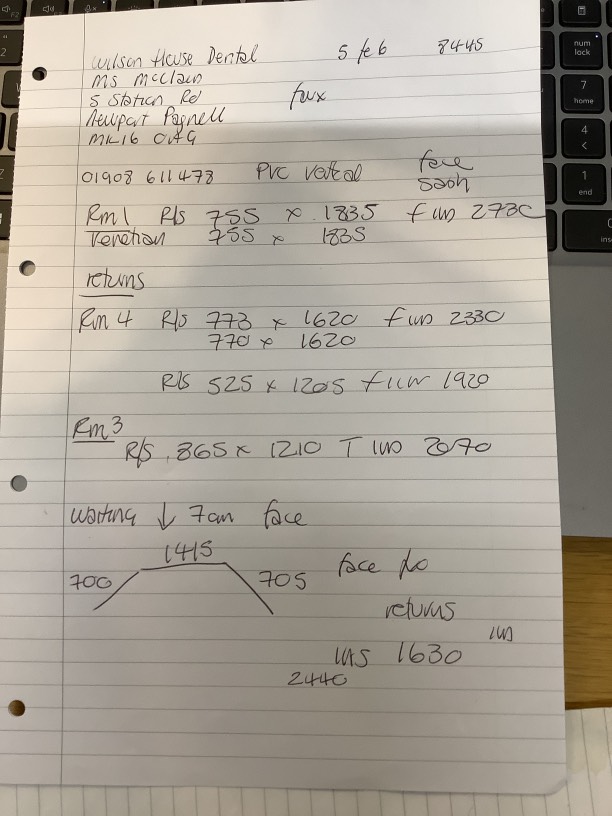 Wilson House Dental 5 feb 8445
Ms McClain
5 Station Rd faux
Newport Pagnell
MK16 0AG
01908 611478 PVC Vertical face
sash
Rm1 R/S 755 x 1835 fun 2730
Venetian 755 x 1835
returns
Rm 4 R/S 773 x 1620 fun 2330
770 x 1620
R/S 525 x 1205 fun 1920
Rm3
R/S 865 x 1210 T un 2070
Waiting ↓ 7cm face
1415
700 705 face fo
returns
un
ins 1630
2440